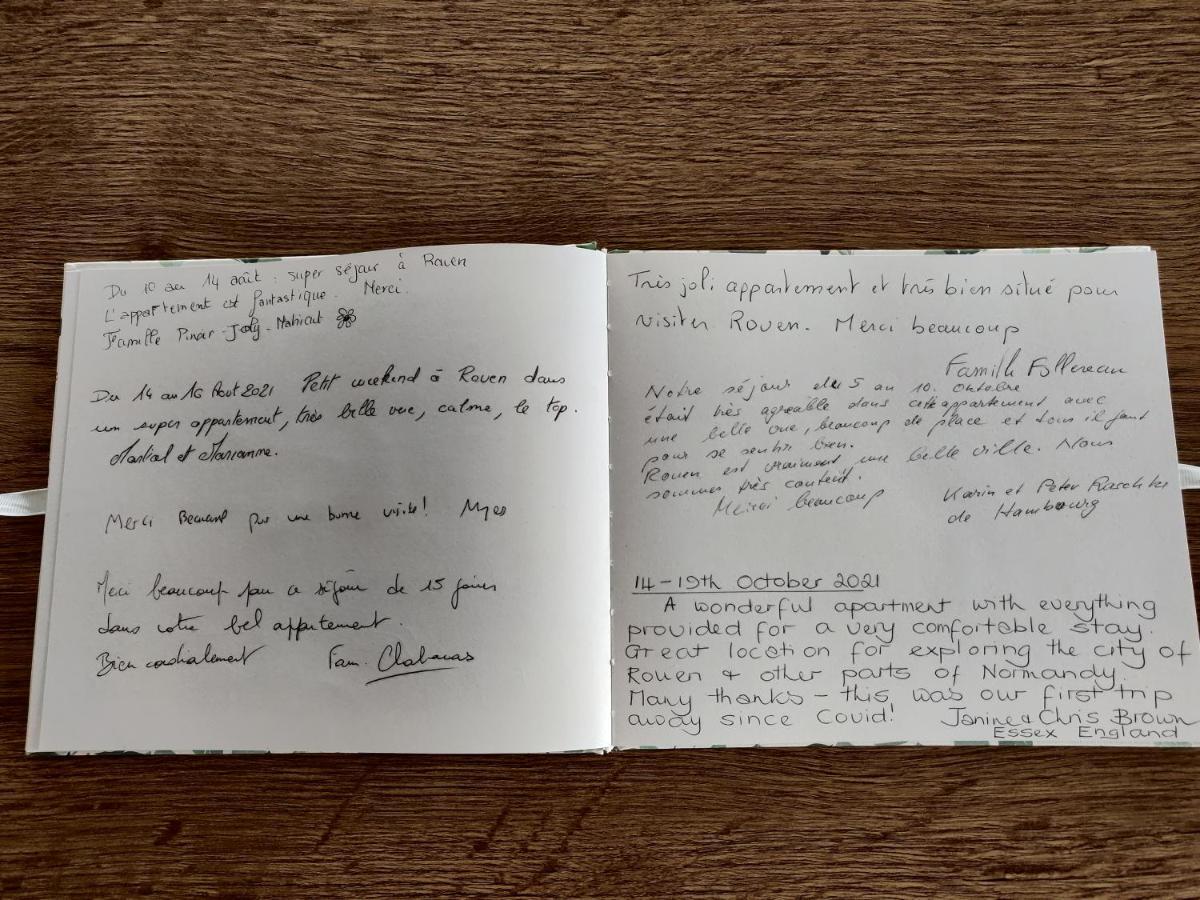 Du 10 au 14 août : super séjour à Rouen
L'appartement est fantastique. Merci.
Famille Pinar-Joly-
Du 14 au 16 Aout 2021 Petit weekend à Rouen dans
un super appartement, très belle vue, calme, le top.
Martial et Marianne.
Merci Beaucoup pour une bonne visite!
Merci beaucoup pour ce séjour de 15 jours
dans votre bel appartement.
Bien cordialement Fam.
Très joli appartement et très bien situé pour
visiter Rouen. Merci beaucoup
Famille Follereau
Notre séjour de 5 au 10. Octobre
était très agreable dans cette appartement avec
une belle vue, beaucoup de place et tous il faut
pour se sentir bien.
Rouen est vraiment une belle ville. Nous
sommes très content.
Merci beaucoup
Karin et Peter
de Hambourg
14-19th October 2021
A wonderful apartment with everything
provided for a very comfortable stay.
Great location for exploring the city of
Rouen & other parts of Normandy.
Many thanks - this was our first trip
away since Covid! Janine & Chris Brown
Essex England